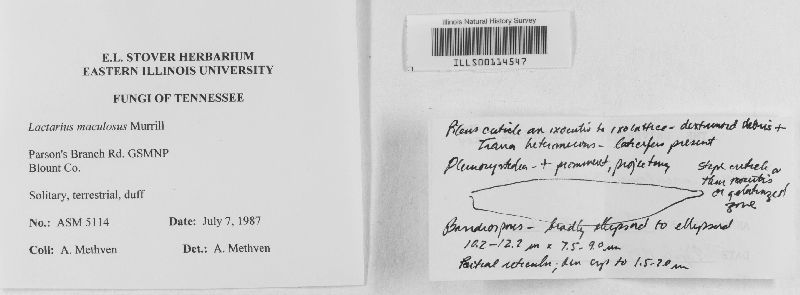 E.L. STOVER HERBARIUM
EASTERN ILLINOIS UNIVERSITY
FUNGI OF TENNESSEE
Lactarius maculosus Murrill
Parson's Branch Rd. GSMNP
Blount Co.
Solitary, terrestrial, duff
No.: ASM 5114 Date: July 7, 1987
Coll: A. Methven Det.: A. Methven
Illinois Natural History Survey
ILLS00114547
Pileus cuticle an ixocutis to ixolattice - destroyed debris +
Trama heteromerous - laticifers present
Pleurocystidia - + prominent, projecting
Stipe cuticle a
thin ixocutis
or gelatinized
zone
Basidiospores - broadly ellipsoid to ellipsoid
10.2-12.2 µm x 7.5-9.0 µm
Partial reticulum, up to 1.5-2.0 µm